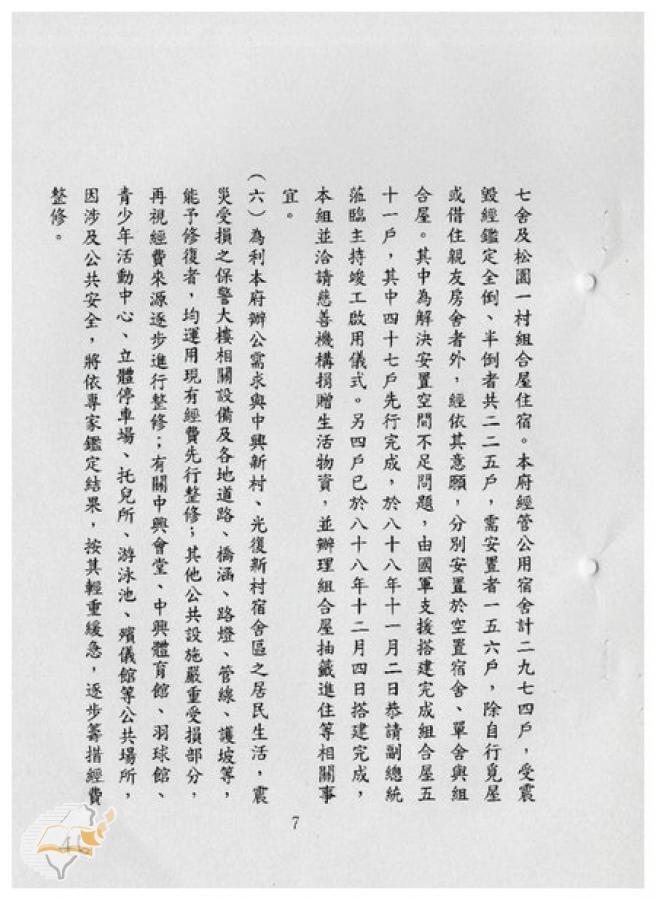 七舍及松園一村組合屋住宿。本府經管公用宿舍計二九七四戶，受震
毀經鑑定全倒、半倒者共二二五戶，需安置者一五六戶，除自行覓屋
或借住親友房舍者外，經依其意願，分別安置於空置宿舍、單舍與組
合屋。其中為解決安置空間不足問題，由國軍支援搭建完成組合屋五
十一戶，其中四十七戶先行完成，於八十八年十一月二日恭請副總統
蒞臨主持竣工啟用儀式。另四戶已於八十八年十二月四日搭建完成，
本組並洽請慈善機構捐贈生活物資，並辦理組合屋抽籤進住等相關事
宜。
（六）為利本府辦公需求與中興新村、光復新村宿舍區之居民生活，震
災受損之保警大樓相關設備及各地道路、橋涵、路燈、管線、護坡等，
能予修復者，均運用現有經費先行整修；其他公共設施嚴重受損部分，
再視經費來源逐步進行整修；有關中興會堂、中興體育館、羽球館、
青少年活動中心、立體停車場、托兒所、游泳池、殯儀館等公共場所，
因涉及公共安全，將依專家鑑定結果，按其輕重緩急，逐步籌措經費
整修。
7